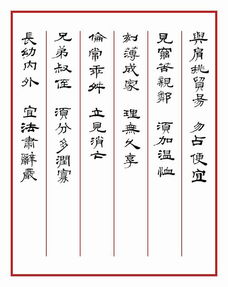 與肩挑貿易 勿占便宜
見窮苦親鄰 須加溫恤
刻薄成家 理無久享
倫常乖舛 立見消亡
兄弟叔侄 須分多潤寡
長幼內外 宜法肅辭嚴